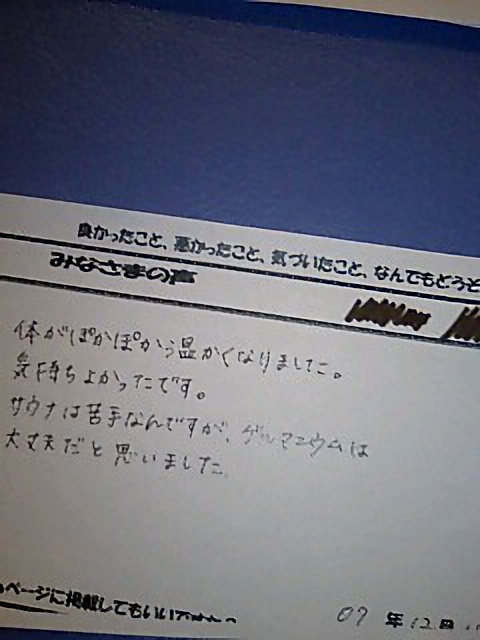 良かったこと、悪かったこと、気づいたこと、なんでもどうぞ
みなさまの声
体がぽかぽかう温かくなりました。
気持ちよかったです。
サウナは苦手なんですが、ゲルマニウムは
大丈夫だと思いました。
ページに掲載してもいい
07 年 12 月